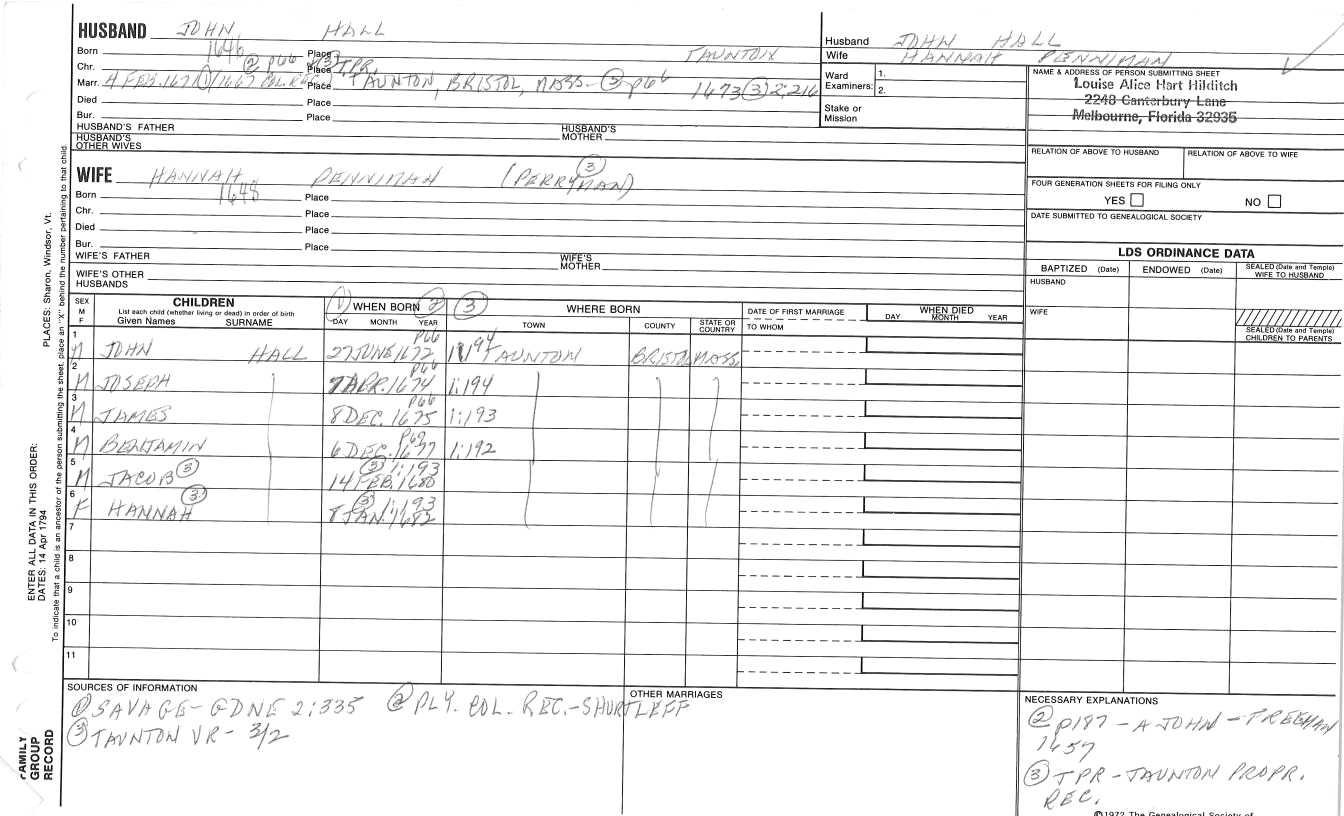 HUSBAND JOHN HALL
Born 1646 Place TAUNTON
Chr. ② p66 Place ③ TPR
Marr. 4 FEB. 1671 ① /1667 COL. REC Place TAUNTON, BRISTOL, MASS. ③ p66 1673 ③ 2:216
Died Place
Bur. Place
HUSBAND'S FATHER HUSBAND'S MOTHER
HUSBAND'S OTHER WIVES
Husband JOHN HALL
Wife HANNAH PENNIMAN
Ward Examiners: 1.
2.
Stake or Mission
NAME & ADDRESS OF PERSON SUBMITTING SHEET
Louise Alice Hart Hilditch
2248 Canterbury Lane
Melbourne, Florida 32935
RELATION OF ABOVE TO HUSBAND RELATION OF ABOVE TO WIFE
FOUR GENERATION SHEETS FOR FILING ONLY
YES NO
DATE SUBMITTED TO GENEALOGICAL SOCIETY
WIFE HANNAH PENNIMAN (PERRYMAN) ③
Born 1648 Place
Chr. Place
Died Place
Bur. Place
WIFE'S FATHER WIFE'S MOTHER
WIFE'S OTHER HUSBANDS
LDS ORDINANCE DATA
BAPTIZED (Date) ENDOWED (Date) SEALED (Date and Temple) WIFE TO HUSBAND
HUSBAND
WIFE
SEALED (Date and Temple) CHILDREN TO PARENTS
SEX M F
CHILDREN
List each child (whether living or dead) in order of birth
Given Names SURNAME
① WHEN BORN ② ③
DAY MONTH YEAR
WHERE BORN
TOWN COUNTY STATE OR COUNTRY
DATE OF FIRST MARRIAGE
TO WHOM
WHEN DIED
DAY MONTH YEAR
1 M JOHN HALL 27 JUNE 1672 p66 1:194 TAUNTON BRISTOL MASS.
2 M JOSEPH 7 APR. 1674 p66 1:194
3 M JAMES 8 DEC. 1675 p66 1:193
4 M BENJAMIN 6 DEC. 1677 1:192
5 M JACOB ③ 14 FEB. 1680 ③ 1:193
6 F HANNAH ③ 8 JAN. 1682 ③ 1:193
7
8
9
10
11
SOURCES OF INFORMATION
① SAVAGE - GDNE 2:335 ② PLY. COL. REC. - SHURTLEFF
③ TAUNTON VR - 3/2
OTHER MARRIAGES
NECESSARY EXPLANATIONS
② p187 - A JOHN - FREEMAN
1657
③ TPR - TAUNTON PROPR.
REC.
©1972 The Genealogical Society of
PLACES: Sharon, Windsor, Vt.
ENTER ALL DATA IN THIS ORDER:
DATES: 14 Apr 1794
To indicate that a child is an ancestor of the person submitting the sheet, place an "X" behind the number pertaining to that child.
FAMILY
GROUP
RECORD